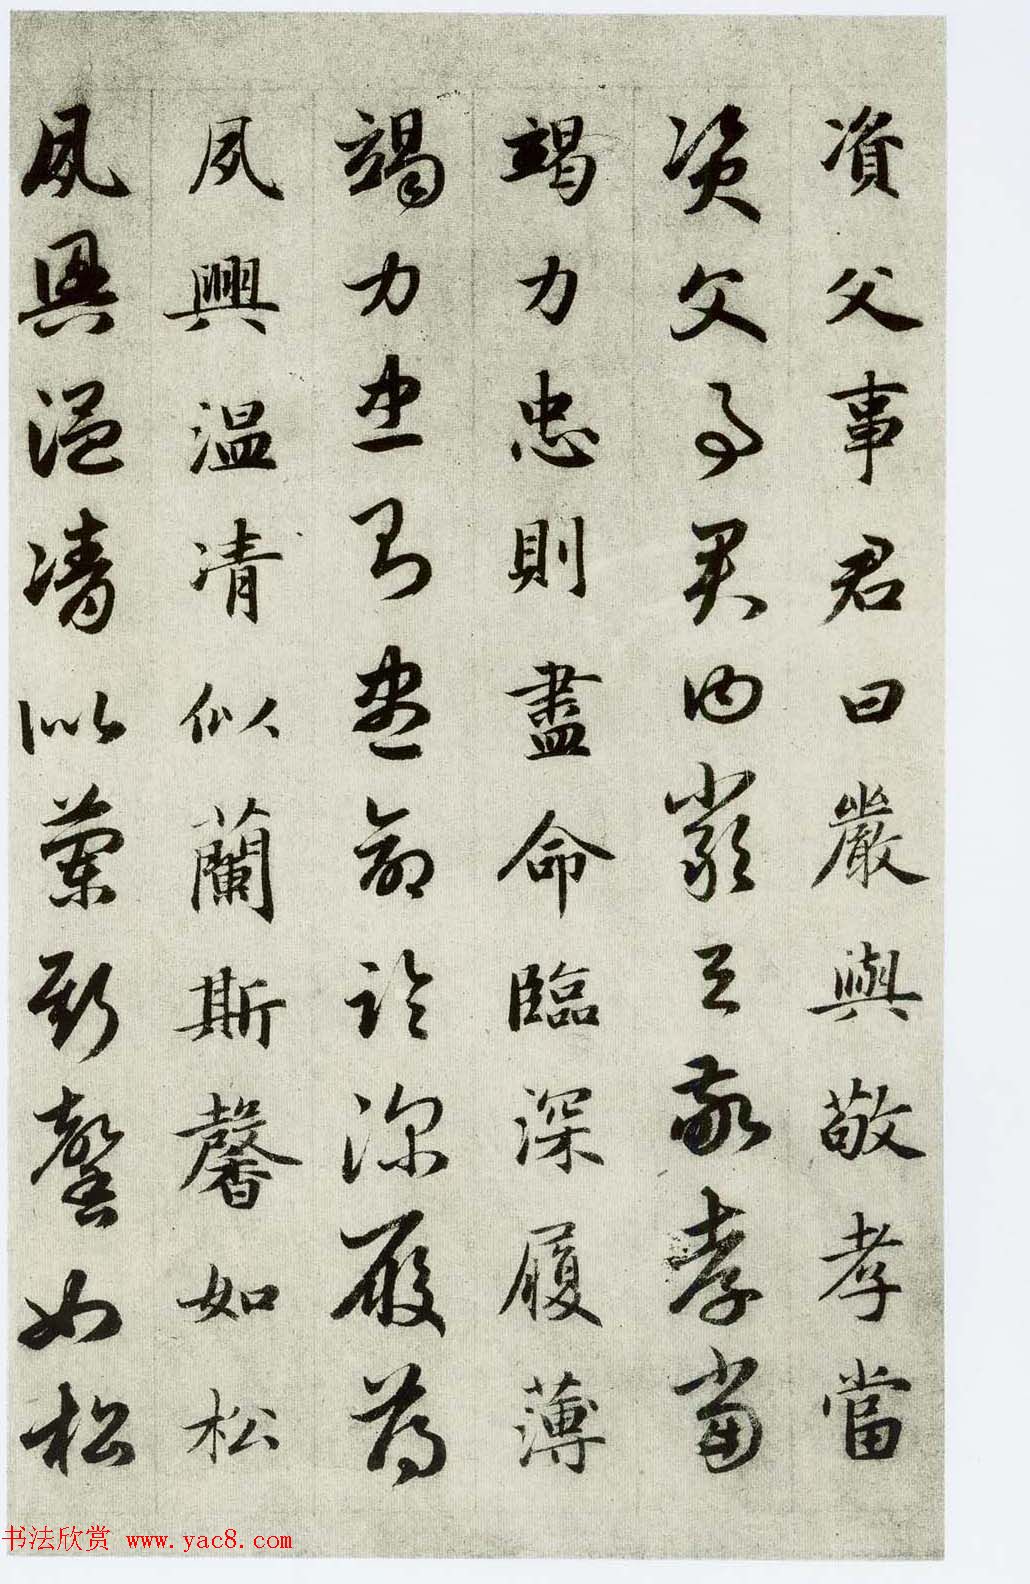 資父事君曰嚴與敬孝當
資父事君曰嚴與敬孝當
竭力忠則盡命臨深履薄
竭力忠則盡命臨深履薄
夙興温凊似蘭斯馨如松
夙興温凊似蘭斯馨如松
书法欣赏 www.yac8.com